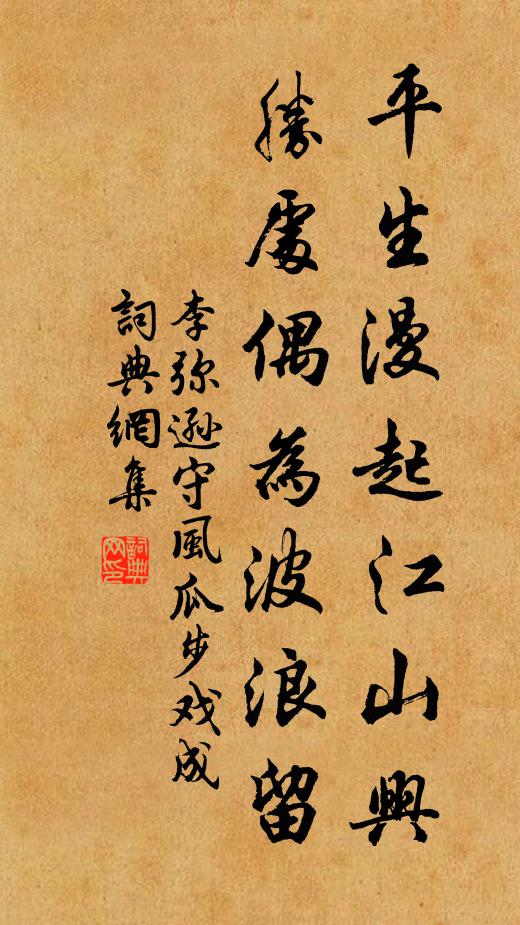 平生漫起江山興
勝處偶為波浪留
李弥遜守風瓜步戏成
詞典網集
詞典網印